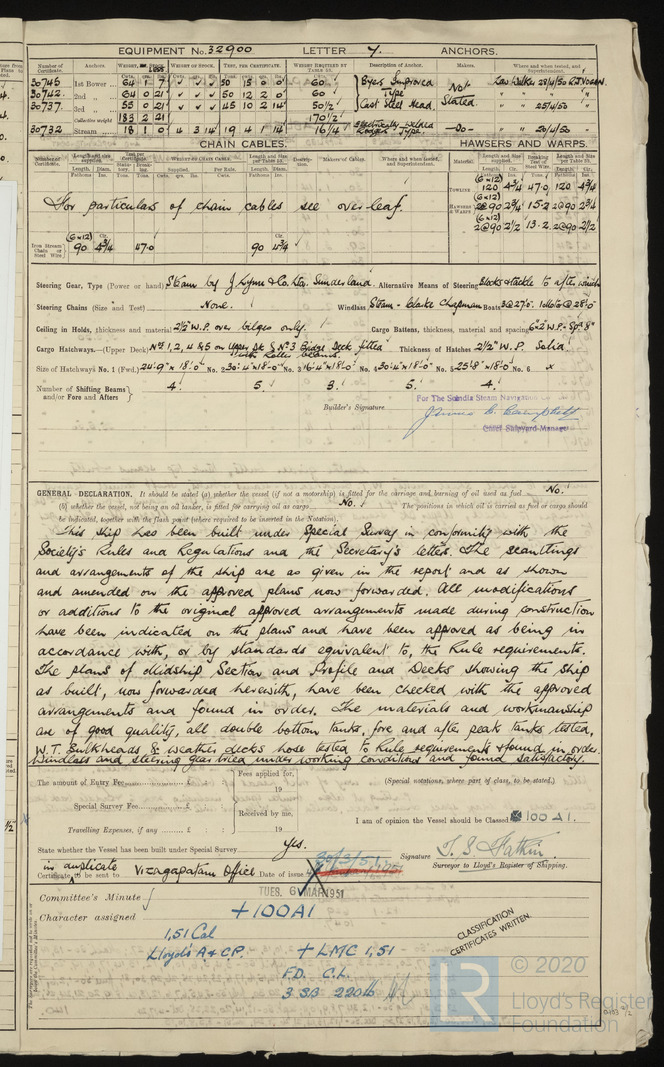 EQUIPMENT No. 32900 LETTER Y. ANCHORS.
Number of Certificate. Anchors. WEIGHT, EX. STOCK. WEIGHT OF STOCK. TEST, PER CERTIFICATE. WEIGHT REQUIRED BY TABLE 53. Description of Anchor. Makers. Where and when tested, and Superintendent.
30745 1st Bower 64 1 7 50 15 0 0 60 Byers Improved Not Low Walker 28/4/50
30742. 2nd " 64 0 21 50 12 2 0 60 Type Stated. " " "
30737. 3rd " 55 0 21 45 10 2 14 50½ Cast Steel Head. " 25/4/50 "
Collective weight 183 2 21 170½
30732 Stream 18 1 0 4 3 14 19 4 1 14 16¼ Type. —Do— " 20/4/50 "
CHAIN CABLES. HAWSERS AND WARPS.
For particulars of chain cables see over-leaf.
TOWLINE (6x12) 120 4¾ 47.0 120 4¾
HAWSERS & WARPS (6x12) 2@90 2¾ 15.2 2@90 2¾
(6x12) 2@90 2½ 13.2 2@90 2½
Iron Stream Chain or Steel Wire (6x12) 90 4¾ 47.0 90 4¾
Steering Gear, Type (Power or hand) Steam by J Lynn & Co. Ltd. Sunderland. Alternative Means of Steering Blocks & tackle to after winch
Steering Chains (Size and Test) None. Windlass Steam - Clarke Chapman Boats 3@27'0. 1 Moto@28'0
Ceiling in Holds, thickness and material 2½" W.P. over bilges only. Cargo Battens, thickness, material and spacing 6"x2" W.P. - Spd. 8"
Cargo Hatchways.—(Upper Deck) Nos 1, 2, 4 & 5 on Upper Dk & No 3 Bridge Deck fitted with roller beams. Thickness of Hatches 2½" W.P. Solid.
Size of Hatchways No. 1 (Fwd.) 24'9" x 18'0" No. 2 30'4" x 18'0" No. 3 16'4" x 18'0" No. 4 30'4" x 18'0" No. 5 25'8" x 18'0" No. 6 x
Number of Shifting Beams and/or Fore and Afters 4. 5 3. 5. 4.
For The Scindia Steam Navigation
Builder's Signature
Chief Shipyard Manager
GENERAL DECLARATION. It should be stated (a) whether the vessel (if not a motorship) is fitted for the carriage and burning of oil used as fuel No.
(b) whether the vessel, not being an oil tanker, is fitted for carrying oil as cargo No. The positions in which oil is carried as fuel or cargo should
be indicated, together with the flash point (where required to be inserted in the Notation).
This ship has been built under Special Survey in conformity with the
Society's Rules and Regulations and the Secretary's letters. The scantlings
and arrangements of the ship are as given in the report and as shown
and amended on the approved plans now forwarded. All modifications
or additions to the original approved arrangements made during construction
have been indicated on the plans and have been approved as being in
accordance with, or by standards equivalent to, the Rule requirements.
The plans of Midship Section and Profile and Decks showing the ship
as built, now forwarded herewith, have been checked with the approved
arrangements and found in order. The materials and workmanship
are of good quality, all double bottom tanks, fore and after peak tanks tested,
W.T. Bulkheads & weather decks hose tested to Rule requirements & found in order.
Windlass and steering gear tried under working conditions and found satisfactory.
The amount of Entry Fee £ : : Fees applied for, (Special notations, where part of class, to be stated.)
19
Special Survey Fee £ : :
Received by me, I am of opinion the Vessel should be Classed ✠ 100 A1.
Travelling Expenses, if any £ : : 19
State whether the Vessel has been built under Special Survey Yes.
Signature
Surveyor to Lloyd's Register of Shipping.
in duplicate
Certificate to be sent to Vizagapatam Office Date of issue 30/3/51
TUES. 6 MAR 1951
Committee's Minute
Character assigned +100A1
1,51 Cal
Lloyd's A & C.P. + LMC 1,51
F.D. C.L.
3 SB 220 lb
CLASSIFICATION
CERTIFICATES WRITTEN
LR © 2020
Lloyd's Register
Foundation